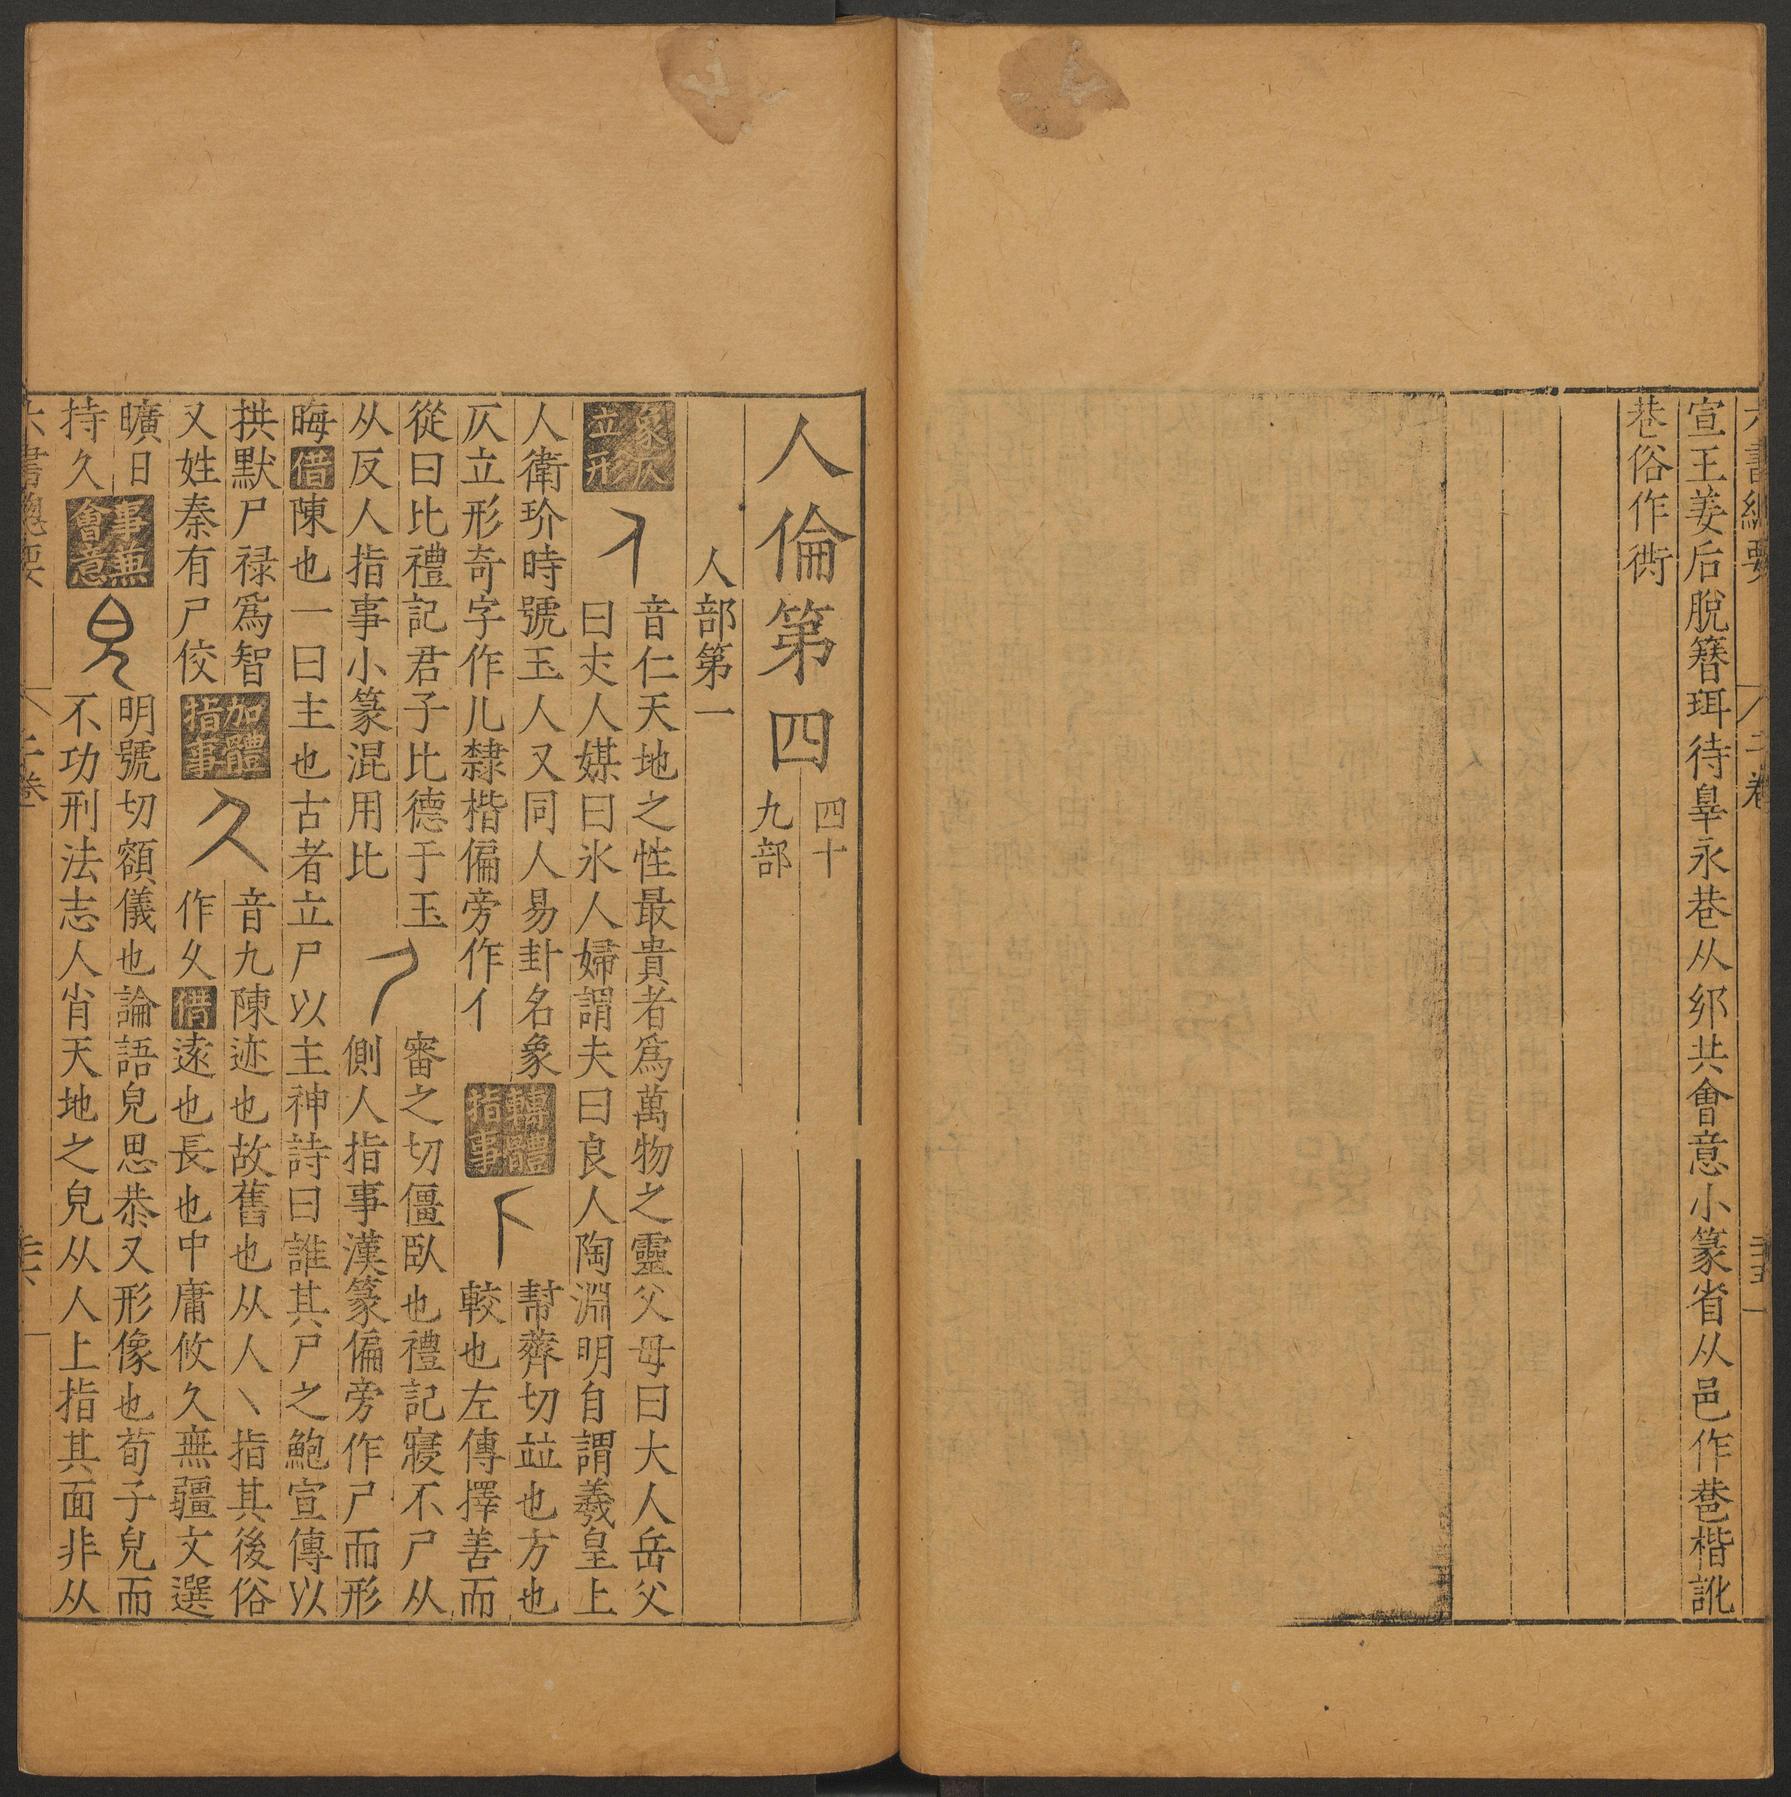 六書緫要 二卷 三十五
宣王姜后脫簪珥待辠永巷从𨙨共會意小篆省从邑作䢽楷訛
巷俗作衖
人倫第四
四十
九部
人部第一
象仄
立形
音仁天地之性最貴者爲萬物之靈父母曰大人岳父
曰𠀋人媒曰氷人婦謂夫曰良人陶淵明自謂羲皇上
人衛玠時號玉人人又同人易卦名象
仄立形奇字作儿隸楷偏旁作亻
轉體
指事
幣薺切竝也方也
較也左傳擇善而
從曰比禮記君子比德于玉
从反人指事小篆混用比
審之切僵臥也禮記寢不尸从
側人指事漢篆偏旁作尸而形
晦借陳也一曰主也古者立尸以主神詩曰誰其尸之鮑宣傳以
拱默尸禄爲智
又姓秦有尸佼
加體
指事
久
音九陳迹也故舊也从人乀指其後俗
作夂借遠也長也中庸攸久無疆文選
曠日
持久
事兼
會意
皃
明號切額儀也論語皃思恭又形像也荀子皃而
不功刑法志人肖天地之皃从人上指其面非从
六書緫要 二卷 三十六